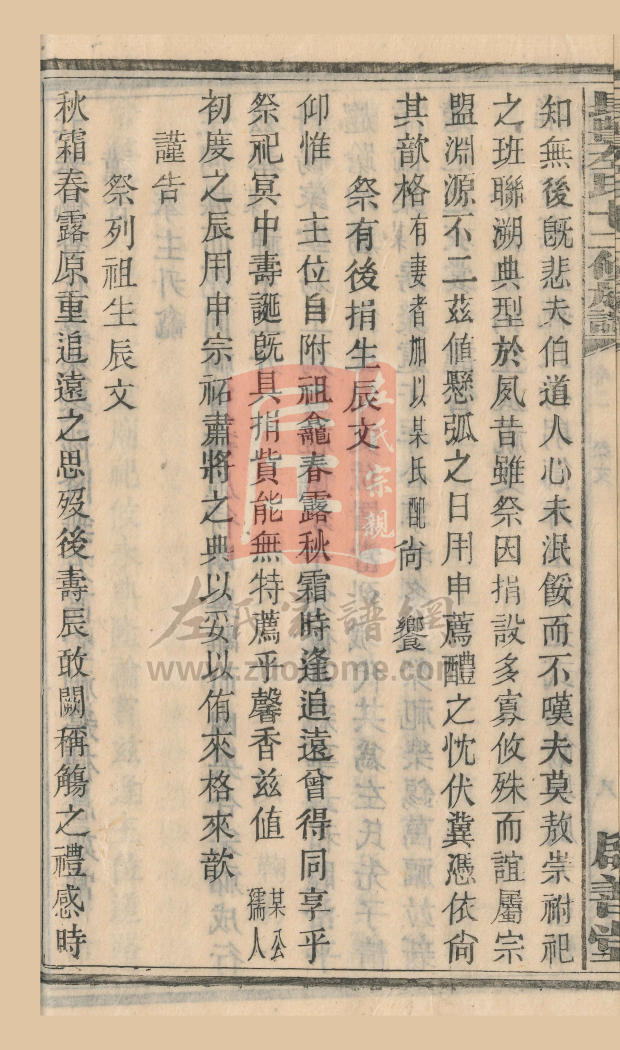 知無後旣悲夫伯道人心未泯餒而不嘆夫莫敖崇祔祀
之班聯溯典型於夙昔雖祭因捐設多寡攸殊而誼屬宗
盟淵源不二茲値懸弧之日用申薦醴之忱伏冀憑依尙
其歆格有妻者加以某氏配尙 饗
祭有後捐生辰文
仰惟 主位自附祖龕春露秋霜時逢追遠曾得同享乎
祭祀冥中壽誕旣具捐貲能無特薦乎馨香兹值某公孺人
初度之辰用申宗祏肅將之典以妥以侑來格來歆
謹告
祭列祖生辰文
秋霜春露原重追遠之思歿後壽辰敢闕稱觴之禮感時
左氏宗親
左氏家譜網
www.zuohome.com